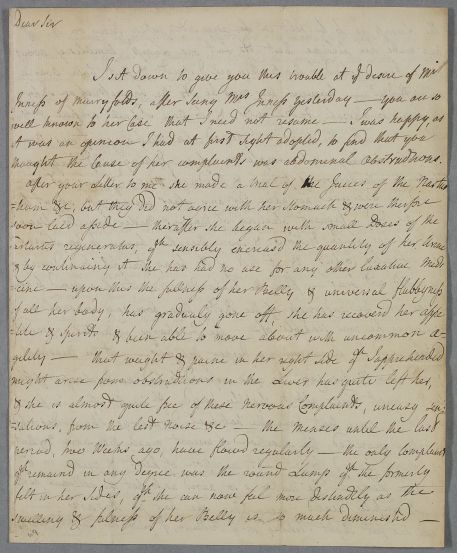 Dear Sir
I sit down to give you this trouble at ye desire of Mr
Inness of muiryfolds, after seing Mrs Inness yesterday — you are so
well known to her Case that I need not resume — I was happy, as
it was an opinion I had at first sight adopted, to find that you
thought the Cause of her complaints was abdominal obstructions.
after your Letter to me she made a trial of the Juices of the Nastur
=tium &c, but they did not agree with her Stomach & were therfore
soon laid aside — therafter she began with small Doses of the
Tartarus regeneratus, qch sensibly encreasd the quantity of her Urine
& by continuing it she has had no use for any other laxative Medi
=cine — upon this the fulness of her Belly & universal flabbyness
of all her body, has gradualy gone off, she has recoverd her appe
=tite & spirits & been able to move about with uncommon a=
gility — that weight & paine in her right side qch I apprehended
might arise from obstructions in the Liver has quite left her,
& she is almost quite free of these Nervous Complaints, uneasy sen=
=sations, from the least Noise &c — the Menses until the last
period, two Weeks ago, have flowd regularly — the only complaint
qch remaind in any degree was the round Lump qch she formerly
felt in her Sides, qch she can now feel more distinctly as the
swelling & fulness of her Belly is so much diminishd —